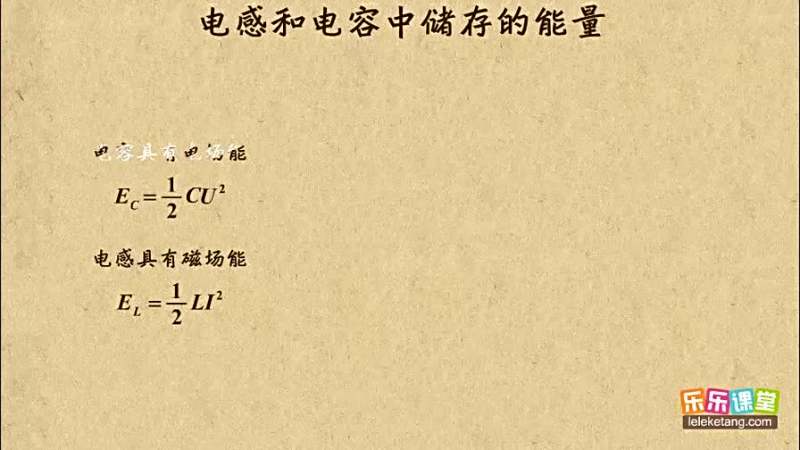 电感和电容中储存的能量
电容具有电场能
E_C = 1/2 CU²
电感具有磁场能
E_L = 1/2 LI²
乐乐课堂
leleketang.com